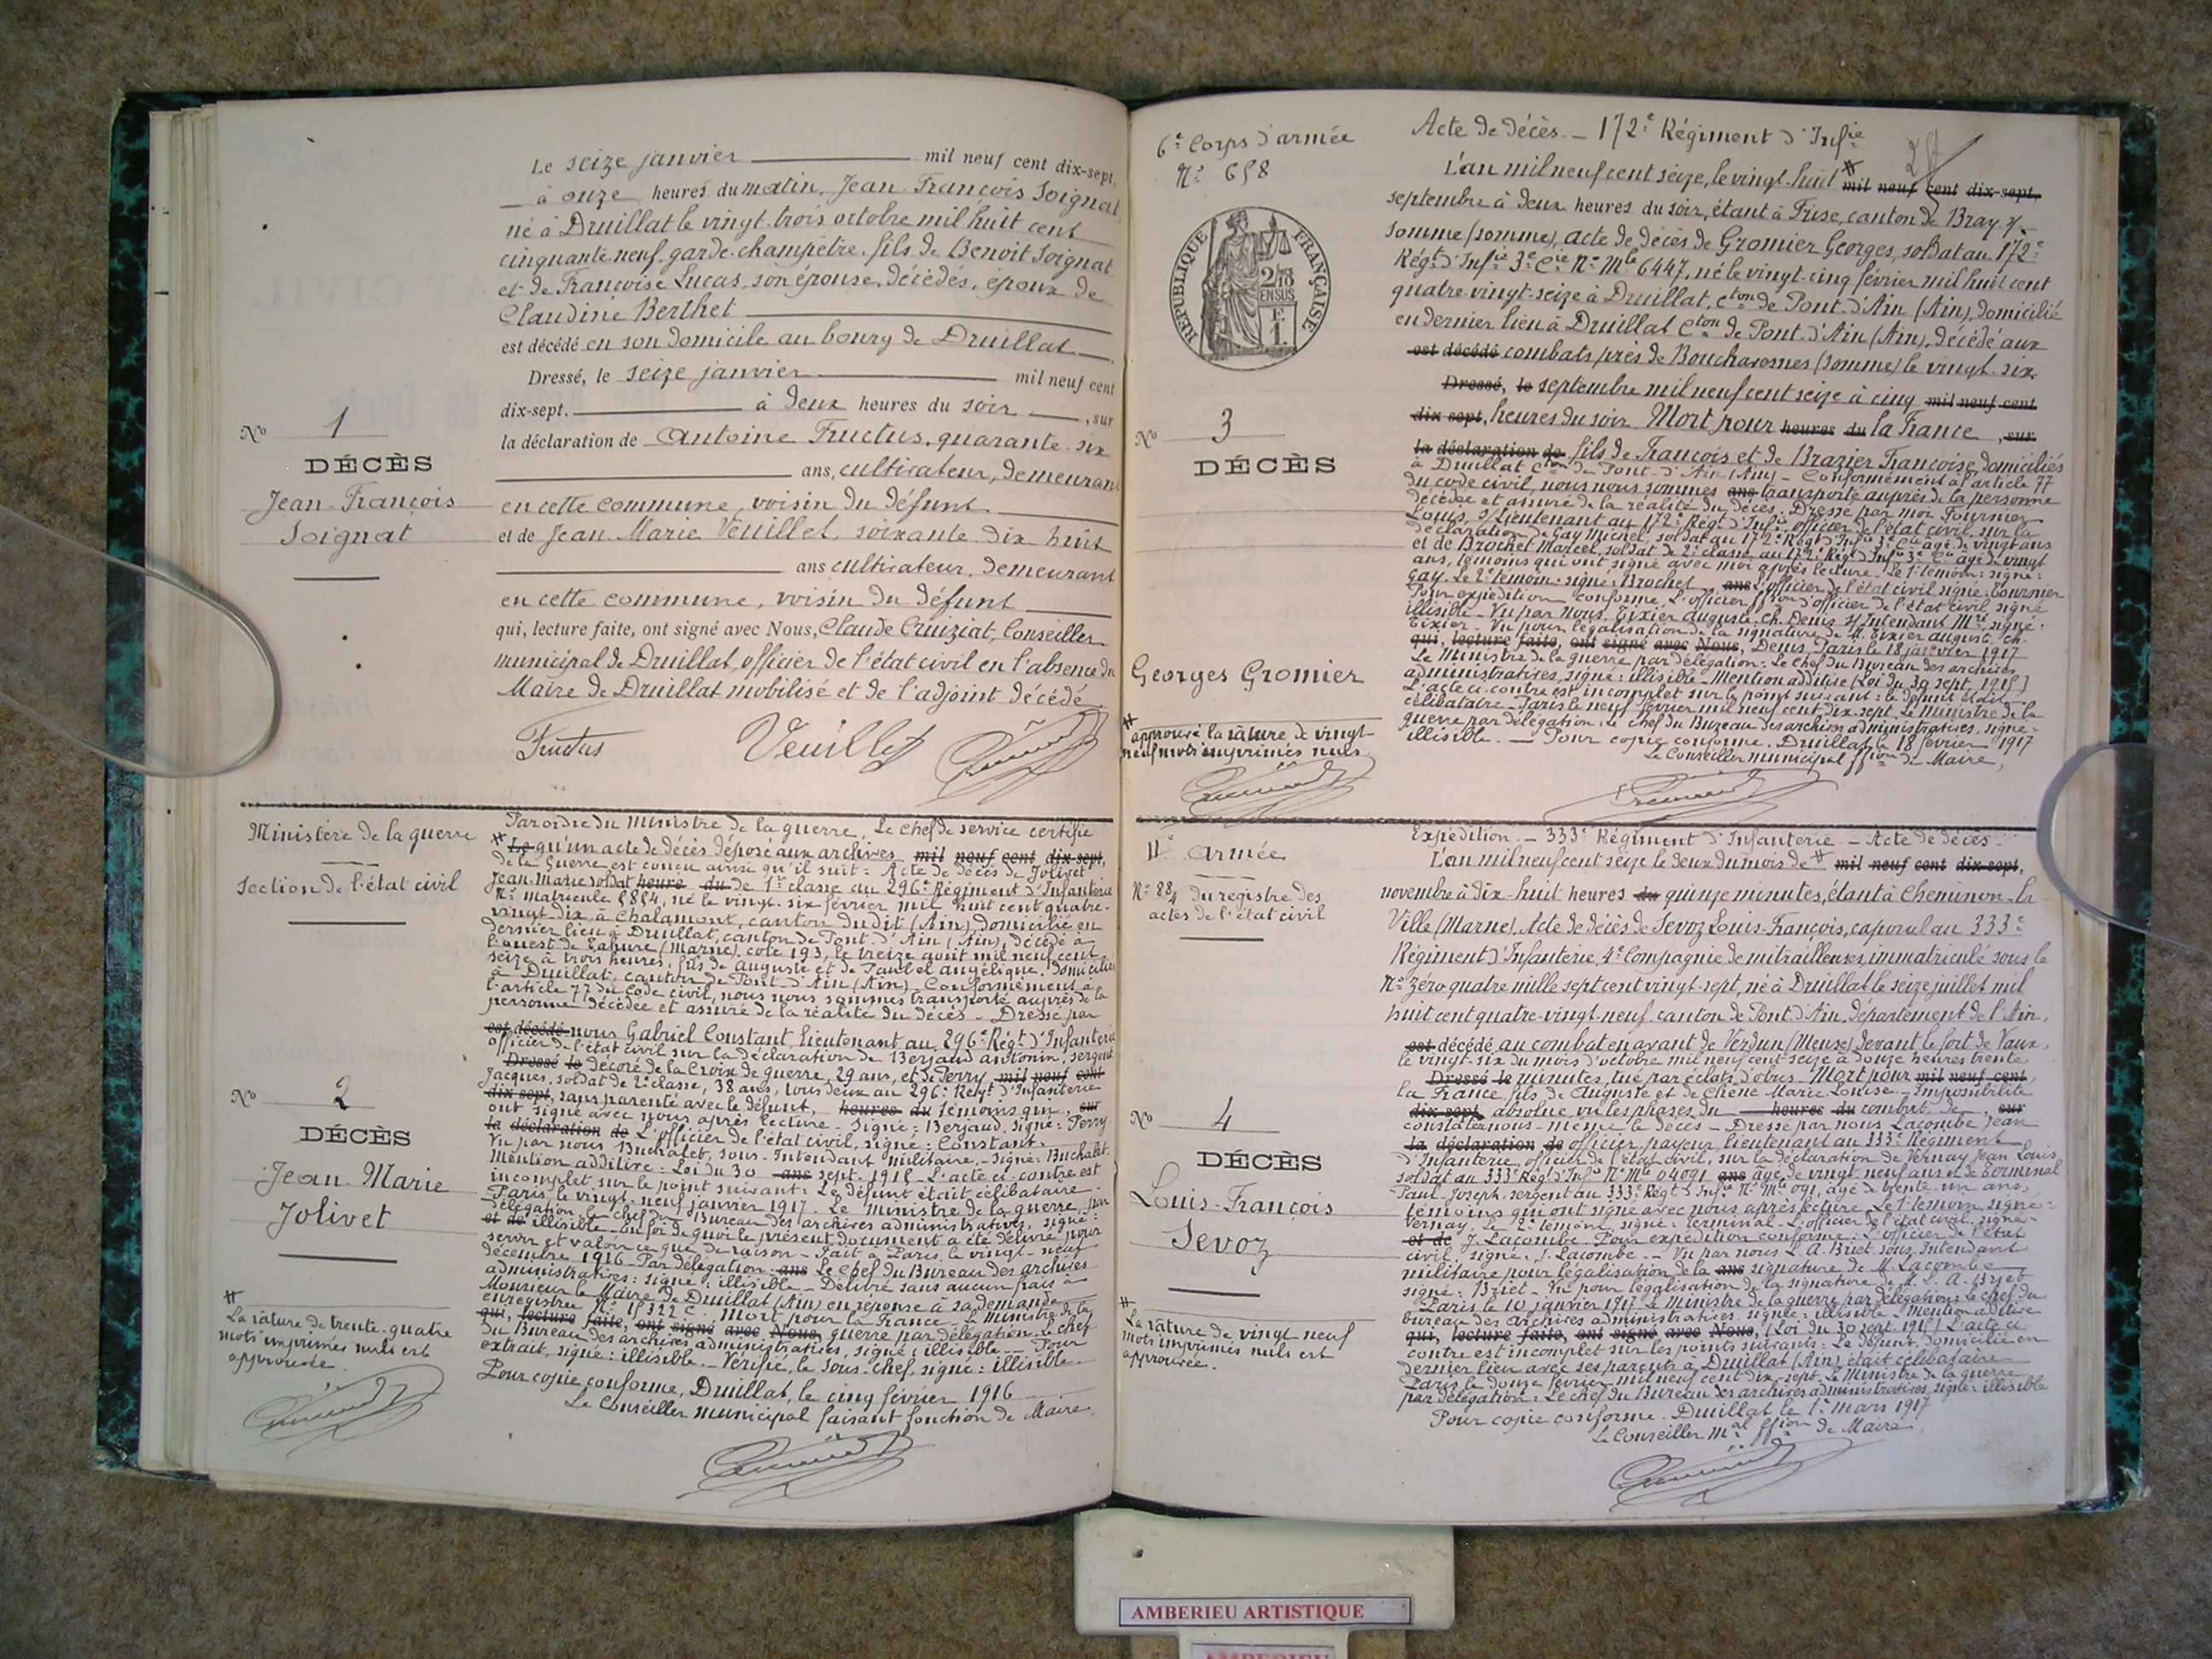 Le seize janvier mil neuf cent dix-sept,
à onze heures du matin, Jean-François Soignat
né à Druillat le vingt-trois octobre mil huit cent
cinquante-neuf, garde-champêtre, fils de Benoit Soignat
et de Françoise Lucas, son épouse, décédés, époux de
Claudine Berthet
est décédé en son domicile au bourg de Druillat
Dressé, le seize janvier mil neuf cent
dix-sept. à deux heures du soir, sur
la déclaration de Antoine Fructus, quarante-six
ans, cultivateur, demeurant
en cette commune, voisin du défunt
et de Jean-Marie Veuillet, soixante-dix-huit
ans cultivateur, demeurant
en cette commune, voisin du défunt
qui, lecture faite, ont signé avec Nous, Claude Cruiziat, Conseiller
municipal de Druillat, officier de l'état civil en l'absence du
Maire de Druillat mobilisé et de l'adjoint décédé
Fructus Veuillet
No 1
DÉCÈS
Jean-François
Soignat
Ministère de la guerre
Section de l'état civil
No 2
DÉCÈS
Jean-Marie
Jolivet
La râture de trente-quatre
mots imprimés nuls est
approuvée.
Par ordre du Ministre de la guerre, Le chef de service certifie
Le qu'un acte de décès déposé aux archives mil neuf cent dix-sept,
de la Guerre est conçu ainsi qu'il suit : Acte de décès de Jolivet
Jean-Marie soldat heure du de 1re classe au 296e Régiment d'Infanterie
No matricule 5854, né le vingt-six février mil huit cent quatre-
vingt-dix, à Chalamont, canton dudit (Ain), domicilié en
dernier lieu à Druillat, canton de Pont-d'Ain (Ain), décédé à
l'ouest de Tahure (Marne), cote 193, le treize août mil neuf cent
seize à trois heures, fils de Auguste et de Paubel Angélique, domiciliés
à Druillat, canton de Pont-d'Ain (Ain). Conformément à
l'article 77 du Code civil, nous nous sommes transporté auprès de la
personne décédée et assuré de la réalité du décès - Dressé par
est décédé nous Gabriel Constant, Lieutenant au 296e Régt d'Infanterie
officier de l'état civil sur la déclaration de Berjaud Antonin, sergent
Dressé le décoré de la Croix de guerre, 29 ans, et de Perry mil neuf cent
Jacques, soldat de 2e classe, 38 ans, tous deux au 296e Regt d'Infanterie
dix-sept, sans parenté avec le défunt, heures du témoins qui, sur
ont signé avec nous après lecture - Signé : Berjaud, signé : Perry
la déclaration de L'officier de l'état civil, signé : Constant.
Vu par nous Buchalet, sous-Intendant militaire, - signé : Buchalet.
Mention additive : Loi du 30 ans sept. 1915 - L'acte ci-contre est
incomplet sur le point suivant : Le défunt était célibataire.
Paris, le vingt-neuf janvier 1917. Le Ministre de la guerre, par
délégation, le chef du Bureau des archives administratives, signé :
et de illisible - En foi de quoi le présent document a été délivré pour
servir et valoir ce que de raison - Fait à Paris, le vingt-neuf
décembre 1916 - Par délégation : ans Le chef du Bureau des archives
administratives : signé : illisible - Délivré sans aucun frais à
Monsieur le Maire de Druillat (Ain) en réponse à sa demande
enregistrée No 15322 C. Mort pour la France - Le Ministre de la
qui, lecture faite, ont signé avec Nous, guerre par délégation, le chef
du Bureau des archives administratives, signé : illisible - Pour
extrait, signé : illisible - Vérifié, le sous-chef, signé : illisible
Pour copie conforme, Druillat, le cinq février 1916
Le Conseiller municipal faisant fonction de Maire
6e Corps d'armée
No 658
RÉPUBLIQUE FRANÇAISE
2/10
EN SUS
F.
1.
No 3
DÉCÈS
Georges Gromier
approuvé la râture de vingt-
neuf mots imprimés nuls
Acte de décès - 172e Régiment d'Infie
L'an mil neuf cent seize, le vingt-huit mil neuf cent dix-sept,
septembre à deux heures du soir, étant à Frise, canton de Bray s/
Somme (Somme), acte de décès de Gromier Georges, soldat au 172e
Régt d'Infie 3e Cie No Mle 6447, né le vingt-cinq février mil huit cent
quatre-vingt-seize à Druillat, cton de Pont-d'Ain (Ain), domicilié
en dernier lieu à Druillat cton de Pont-d'Ain (Ain), décédé aux
est décédé combats près de Bouchavesnes (Somme) le vingt-six
Dressé, le septembre mil neuf cent seize à cinq mil neuf cent
dix-sept, heures du soir Mort pour heures du la France, sur
la déclaration de fils de François et de Brazier Françoise domiciliés
à Druillat cton de Pont-d'Ain (Ain) - Conformément à l'article 77
du code civil, nous nous sommes ans transporté auprès de la personne
décédée et assuré de la réalité du décès. Dressé par moi Fournier
Louis, s/Lieutenant au 172e Régt d'Infie officier de l'état civil, sur la
déclaration de Gay Michel, soldat au 172e Régt d'Infie 3e Cie agé de vingt ans
et de Brochet Marcel, soldat de 2e classe au 172e Régt d'Infie 3e Cie agé de vingt
ans, témoins qui ont signé avec moi après lecture. Le 1er témoin : signé :
Gay. Le 2e témoin : signé : Brochet ans L'officier de l'état civil signé : Fournier
Pour expédition conforme, L'officier ffion d'officier de l'état civil signé
illisible - Vu par nous Tixier Auguste Ch. Denis s/Intendant Mre, signé :
Tixier - Vu pour légalisation de la signature de M. Tixier Auguste, Ch.
qui, lecture faite, ont signé avec Nous, Denis, Paris le 18 janvier 1917
Le Ministre de la guerre par délégation : Le chef du Bureau des archives
administratives, signé : illisible - Mention additive (Loi du 30 sept. 1915)
L'acte ci-contre est incomplet sur le point suivant : le défunt était
célibataire - Paris le neuf février mil neuf cent dix-sept. Le Ministre de la
guerre par délégation, Le chef du Bureau des archives administratives, signé :
illisible. - Pour copie conforme, Druillat le 18 février 1917
Le Conseiller municipal ffion de Maire,
IIe armée
No 884 du registre des
actes de l'état civil
No 4
DÉCÈS
Louis-François
Sevoz
La râture de vingt neuf
mots imprimés nuls est
approuvée.
Expédition. - 333e Régiment d'Infanterie - Acte de décès -
L'an mil neuf cent seize le deux du mois de mil neuf cent dix-sept,
novembre à dix-huit heures du quinze minutes, étant à Cheminon-la-
Ville (Marne), Acte de décès de Sevoz Louis-François, caporal au 333e
Régiment d'Infanterie, 4e Compagnie de mitrailleuses, immatriculé sous le
No zéro quatre mille sept cent vingt-sept, né à Druillat le seize juillet mil
huit cent quatre-vingt-neuf, canton de Pont-d'Ain, département de l'Ain,
est décédé au combat en avant de Verdun (Meuse) devant le fort de Vaux,
le vingt-six du mois d'octobre mil neuf cent seize à douze heures trente
Dressé le minutes, tué par éclats d'obus - Mort pour mil neuf cent
la France, fils de Auguste et de Chêne Marie Louise - Impossibilité
dix-sept, absolue vu les phases du heures du combat de, sur
constater nous-même le décès - Dressé par nous Lacombe Jean
la déclaration de officier payeur lieutenant au 333e Régiment
d'Infanterie, officier de l'état civil, sur la déclaration de Vernay Jean Louis
soldat au 333e Régt d'Infie No Mle 04091 ans âgé de vingt-neuf ans et de Terminal
Paul-Joseph, sergent au 333e Régt d'Infie No Mle 091, âgé de trente-un ans,
témoins qui ont signé avec nous après lecture. Le 1er témoin signé :
Vernay, Le 2e témoin, signé : Terminal - L'officier de l'état civil, signé -
et de J. Lacombe - Pour expédition conforme : L'officier de l'état
civil, signé : J. Lacombe. - Vu par nous L. A. Briet, sous-Intendant
militaire pour légalisation de la ans signature de M. Lacombe
signé : Briet - Vu pour légalisation de la signature de M. L. A. Briet
Paris le 10 janvier 1917 - Le Ministre de la guerre par délégation : Le chef du
bureau des archives administratives, signé : illisible - Mention additive
qui, lecture faite, ont signé avec Nous, (Loi du 30 sept. 1915) L'acte ci
contre est incomplet sur les points suivants : Le défunt, domicilié en
dernier lieu avec ses parents à Druillat (Ain), était célibataire
Paris le douze février mil neuf cent dix-sept. Le Ministre de la guerre
par délégation : Le chef du Bureau des archives administratives, signé : illisible
Pour copie conforme. Druillat le 1er mars 1917
Le Conseiller Mal ffion de Maire
AMBERIEU ARTISTIQUE
AMBERIEU